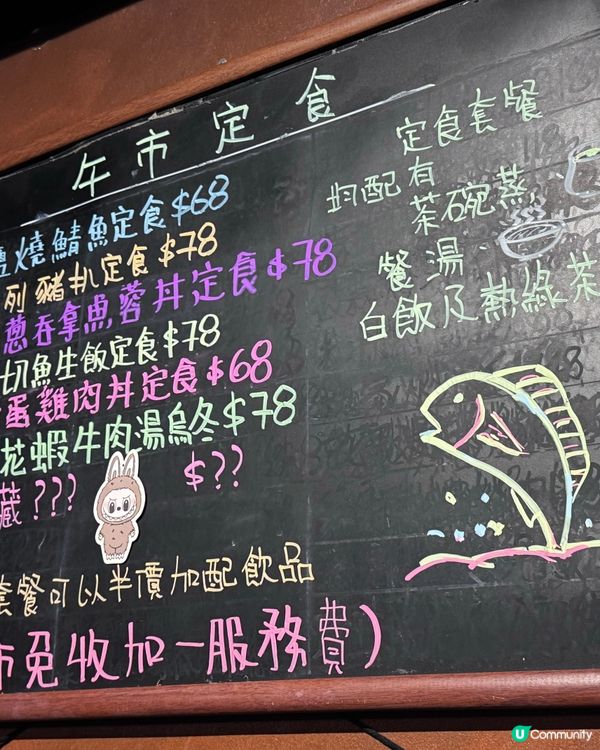 午市定食
鹽燒鯖魚定食$68
列豬扒定食$78
蔥吞拿魚蓉丼定食$78
切魚生飯定食$78
蛋雞肉丼定食$68
花蝦牛肉湯烏冬$78
藏???
$??
套餐可以半價加配飲品
市免收加一服務費)
定食套餐
均配有
茶碗蒸,
餐湯、
白飯及熱綠茶
U Community